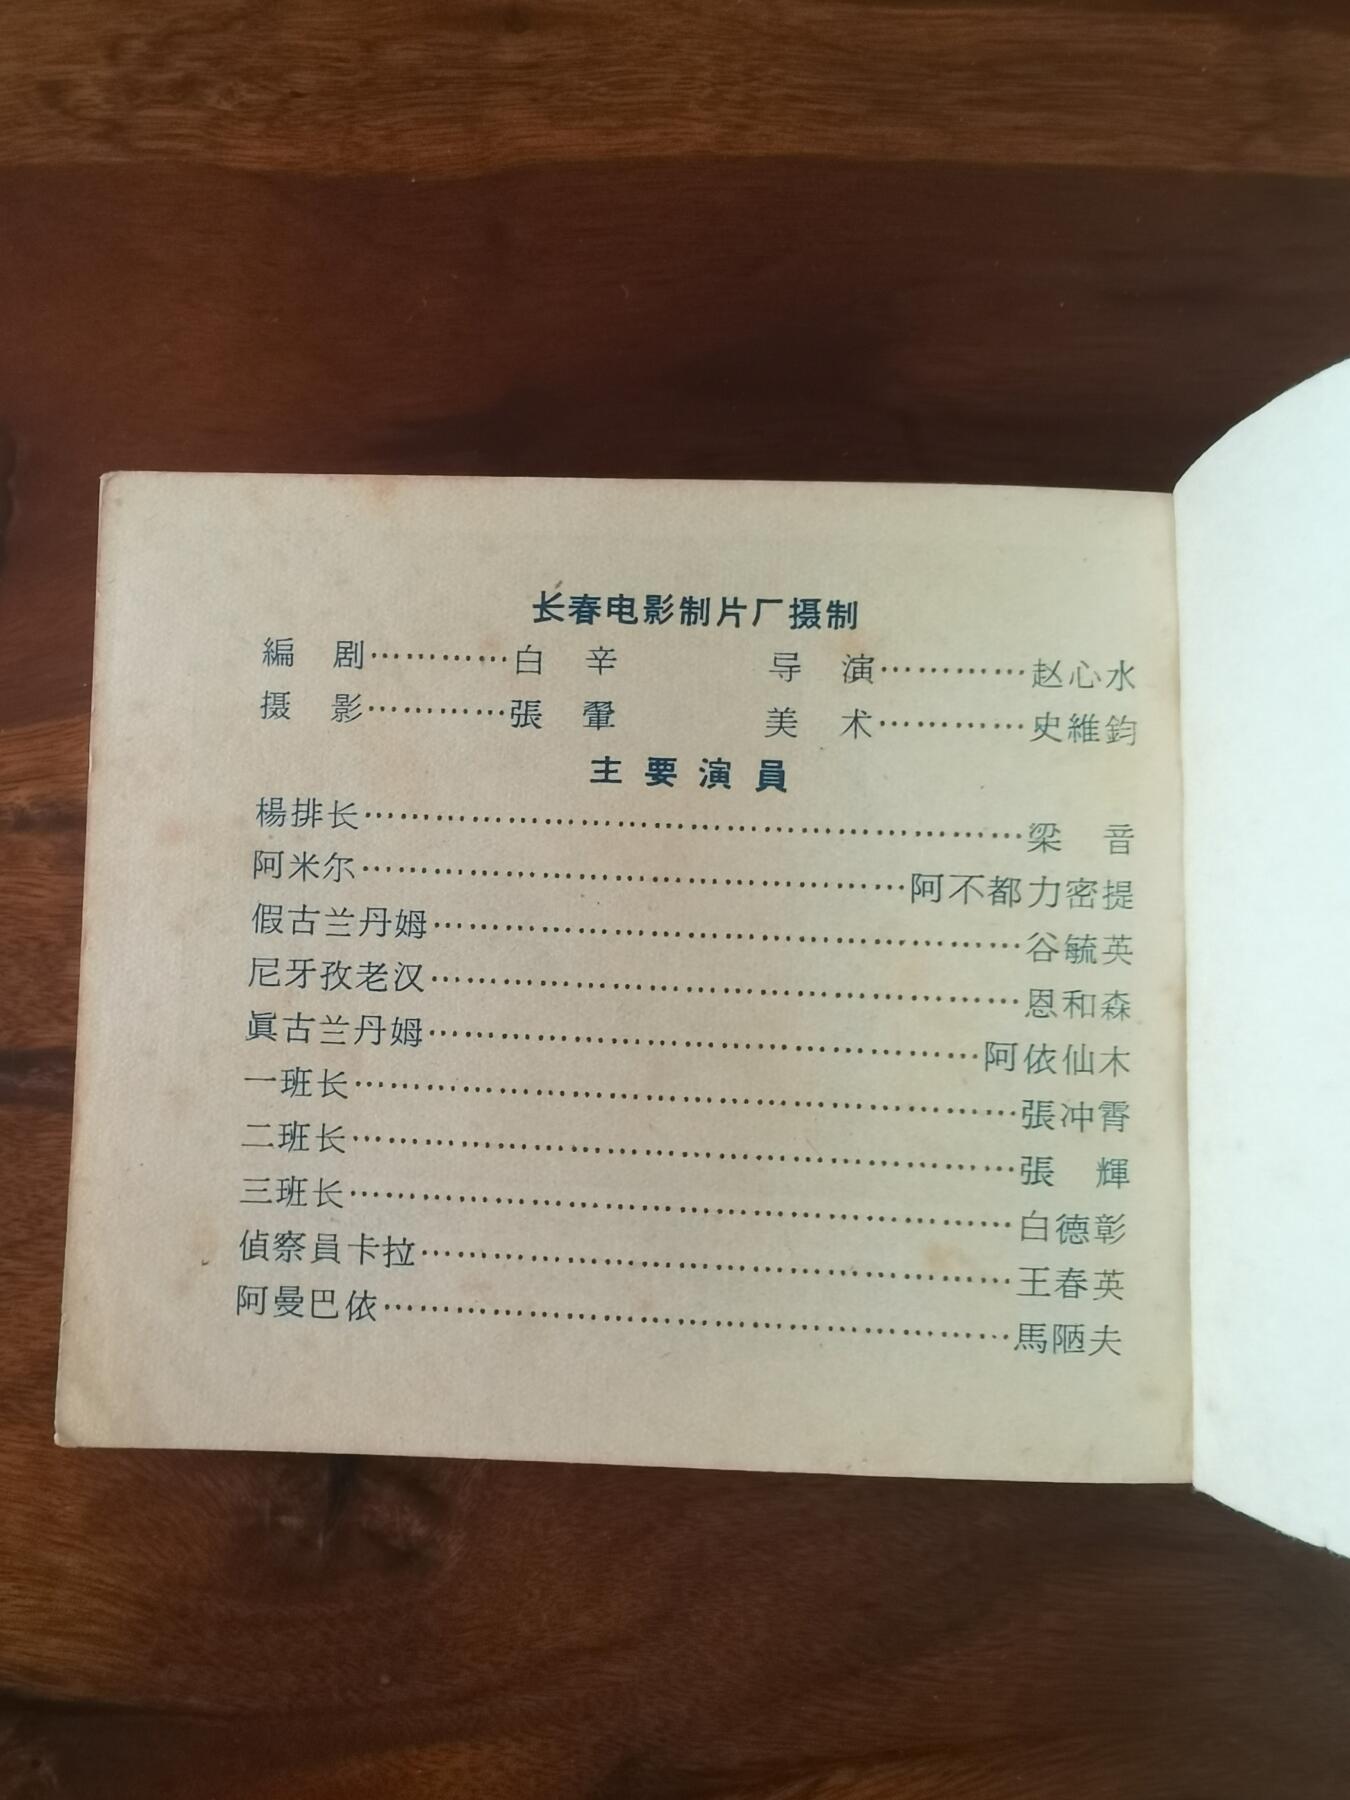 长春电影制片厂摄制
編　剧…………白　辛　　导　演…………赵心水
摄　影…………張　翬　　美　术…………史維鈞
主要演員
楊排长……………………………………梁　音
阿米尔……………………………………阿不都力密提
假古兰丹姆……………………………………谷毓英
尼牙孜老汉……………………………………恩和森
眞古兰丹姆……………………………………阿依仙木
一班长……………………………………張冲霄
二班长……………………………………張　輝
三班长……………………………………白德彰
偵察員卡拉……………………………………王春英
阿曼巴依……………………………………馬陋夫